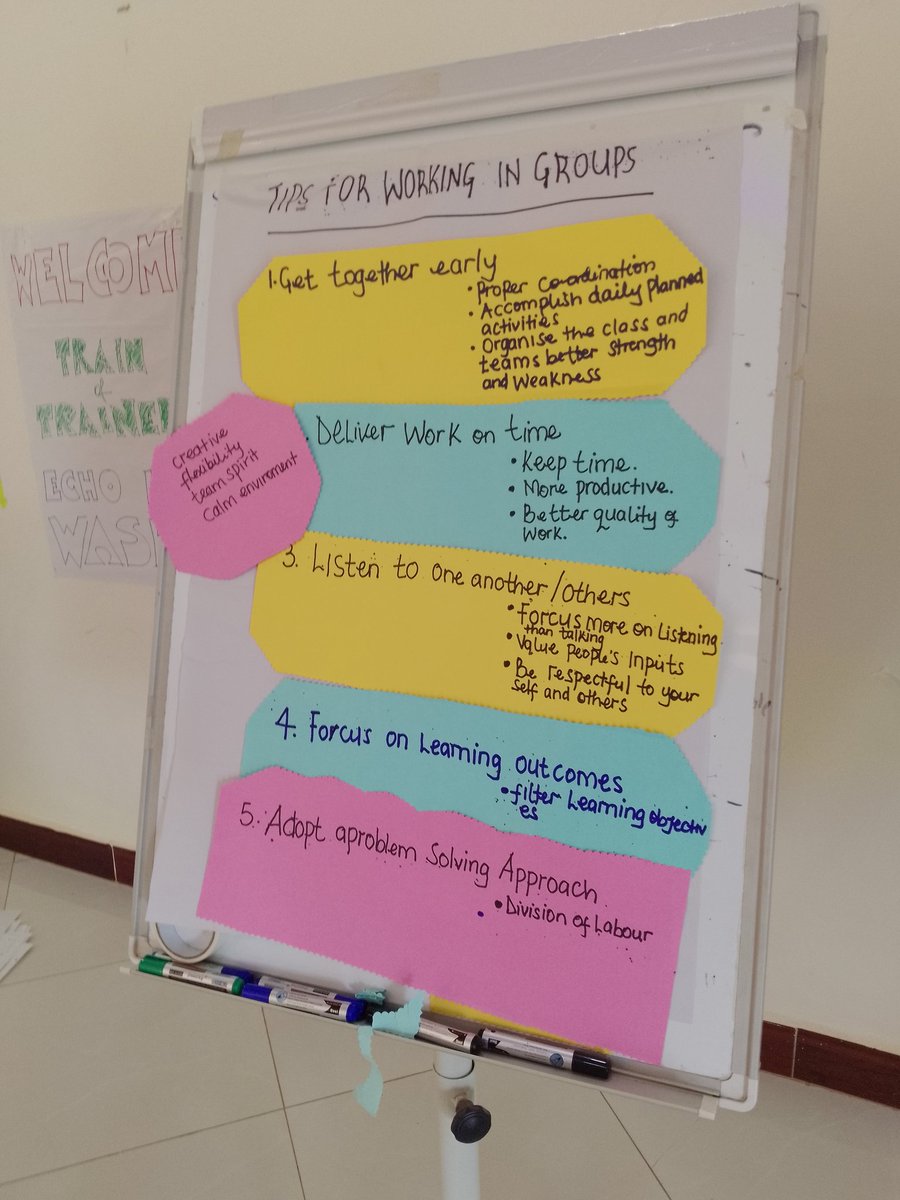 TIPS FOR WORKING IN GROUPS
1. Get together early
• Proper co-ordination
• Accomplish daily planned
activities
• Organise the class and
teams better strength
and Weakness
. Deliver Work on time
• Keep time.
• More productive.
• Better quality of
work.
creative
flexibility
team spirit
calm enviroment
3. Listen to one another/others
• Forcus more on Listening
than talking
• Value People's Inputs
• Be respectful to your
self and others
4. Forcus on Learning outcomes
• filter Learning objectiv
es
5. Adopt aproblem Solving Approach
• Division of Labour
WELCOM
TRAIN
of
TRAINE
ECHO
WAS